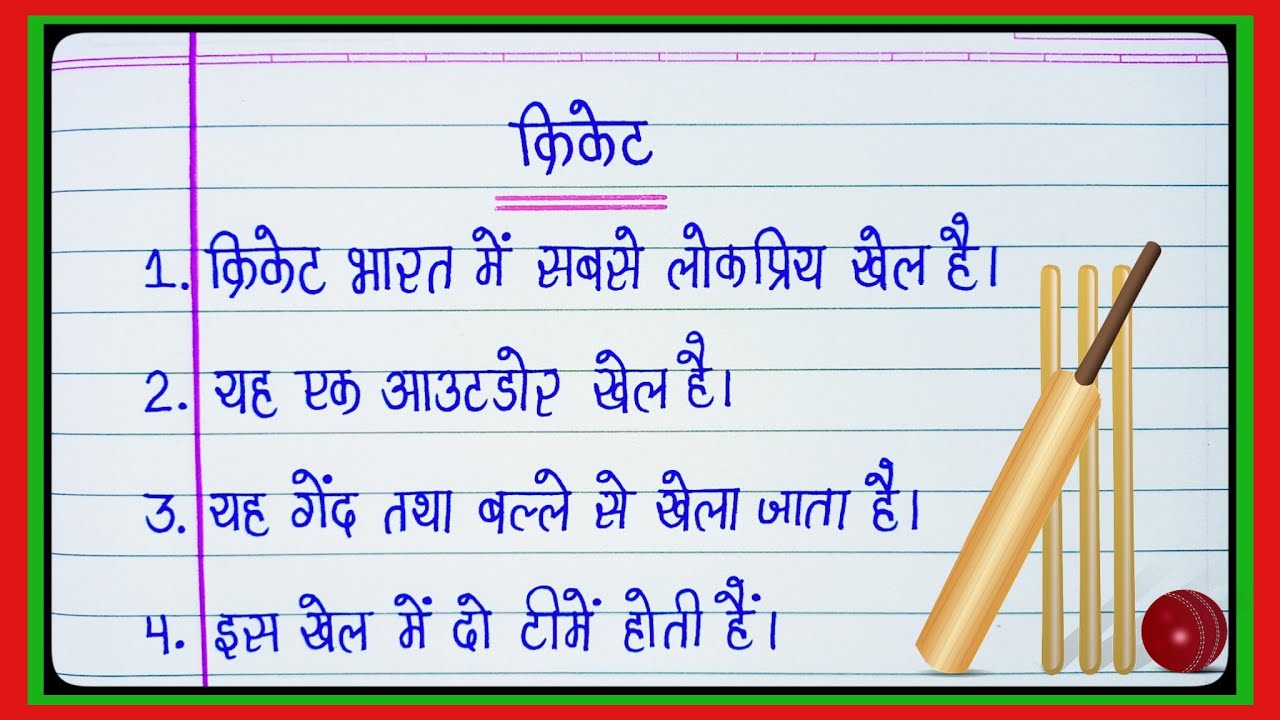 क्रिकेट
1. क्रिकेट भारत में सबसे लोकप्रिय खेल है।
2. यह एक आउटडोर खेल है।
3. यह गेंद तथा बल्ले से खेला जाता है।
4. इस खेल में दो टीमें होती हैं।